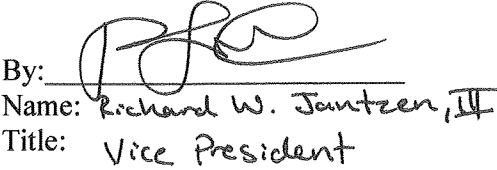 By:
Name: Richard W. Jantzen, III
Title: Vice President